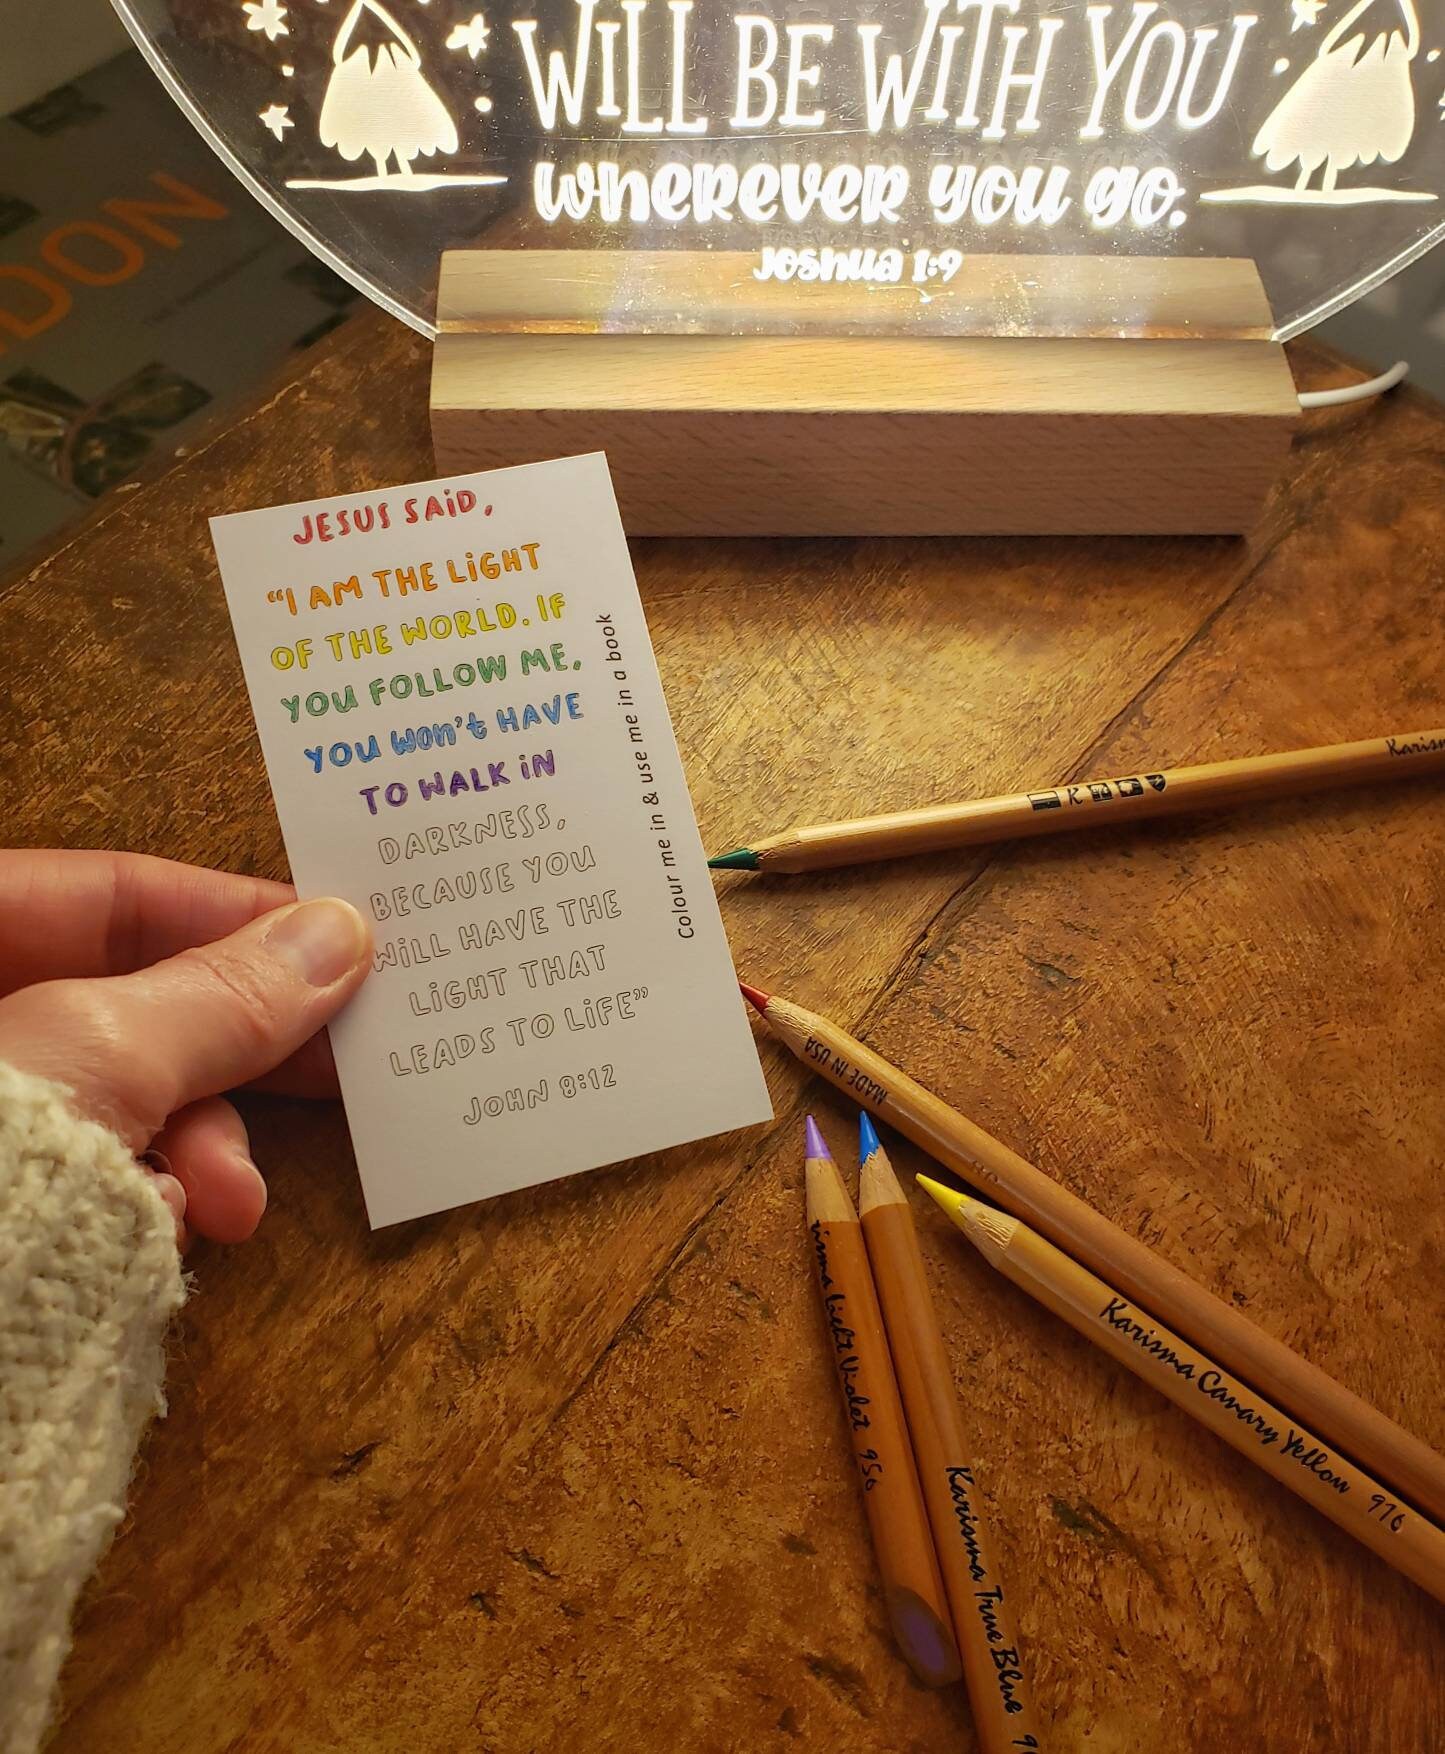 WILL BE WITH YOU
wherever you go.
Joshua 1:9
DON
JESUS SAiD,
“I AM THE LiGHT
OF THE WORLD. IF
YOU FOLLOW ME,
YOU WON't HAVE
TO WALK iN
DARKNESS,
BECAUSE YOU
WiLL HAVE THE
LiGHT THAT
LEADS TO LiFE”
JOHN 8:12
Colour me in & use me in a book
K
MADE IN USA
Light Violet 956
Karisma True Blue
Karisma Canary Yellow 916